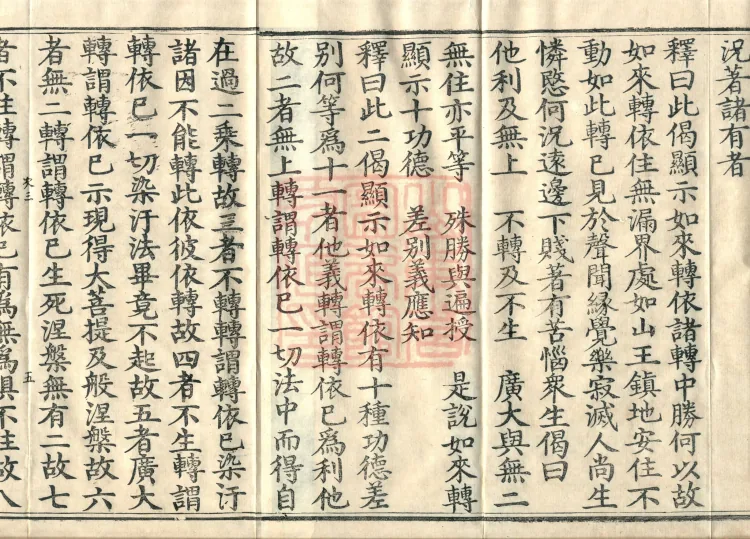 況著諸有者
釋曰此偈顯示如來轉依諸轉中勝何以故
如來轉依住無漏界處如山王鎮地安住不
動如此轉已見於聲聞緣覺樂寂滅人尚生
憐愍何況遠邊下賤著有苦惱衆生偈曰
他利及無上 不轉及不生 廣大與無二
無住亦平等 殊勝與遍授 是說如來轉
顯示十功德 差別義應知
釋曰此二偈顯示如來轉依有十種功德差
別何等爲十一者他義轉謂轉依已爲利他
故二者無上轉謂轉依已一切法中而得自
在過二乗轉故三者不轉轉謂轉依已染汙
諸因不能轉此依彼依轉故四者不生轉謂
轉依已一切染汙法畢竟不起故五者廣大
轉謂轉依已示現得大菩提及般涅槃故六
者無二轉謂轉依已生死涅槃無有二故七
者不住轉謂轉依已有爲無爲俱不住故八
五